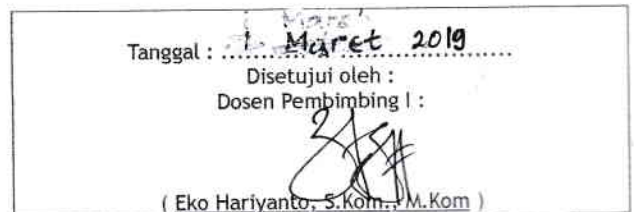 Tanggal : 1 Maret 2019
Disetujui oleh :
Dosen Pembimbing I :
( Eko Hariyanto, S.Kom., M.Kom )